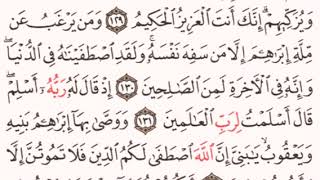 وَيُزَكِّيهِمْ ۚ إِنَّكَ أَنتَ ٱلْعَزِيزُ ٱلْحَكِيمُ ١٢٩ وَمَن يَرْغَبُ عَن
مِّلَّةِ إِبْرَٰهِـۧمَ إِلَّا مَن سَفِهَ نَفْسَهُۥ ۚ وَلَقَدِ ٱصْطَفَيْنَٰهُ فِى ٱلدُّنْيَا ۖ
وَإِنَّهُۥ فِى ٱلْـَٔاخِرَةِ لَمِنَ ٱلصَّٰلِحِينَ ١٣٠ إِذْ قَالَ لَهُۥ رَبُّهُۥٓ أَسْلِمْ ۖ
قَالَ أَسْلَمْتُ لِرَبِّ ٱلْعَٰلَمِينَ ١٣١ وَوَصَّىٰ بِهَآ إِبْرَٰهِـۧمُ بَنِيهِ
وَيَعْقُوبُ يَٰبَنِىَّ إِنَّ ٱللَّهَ ٱصْطَفَىٰ لَكُمُ ٱلدِّينَ فَلَا تَمُوتُنَّ إِلَّا